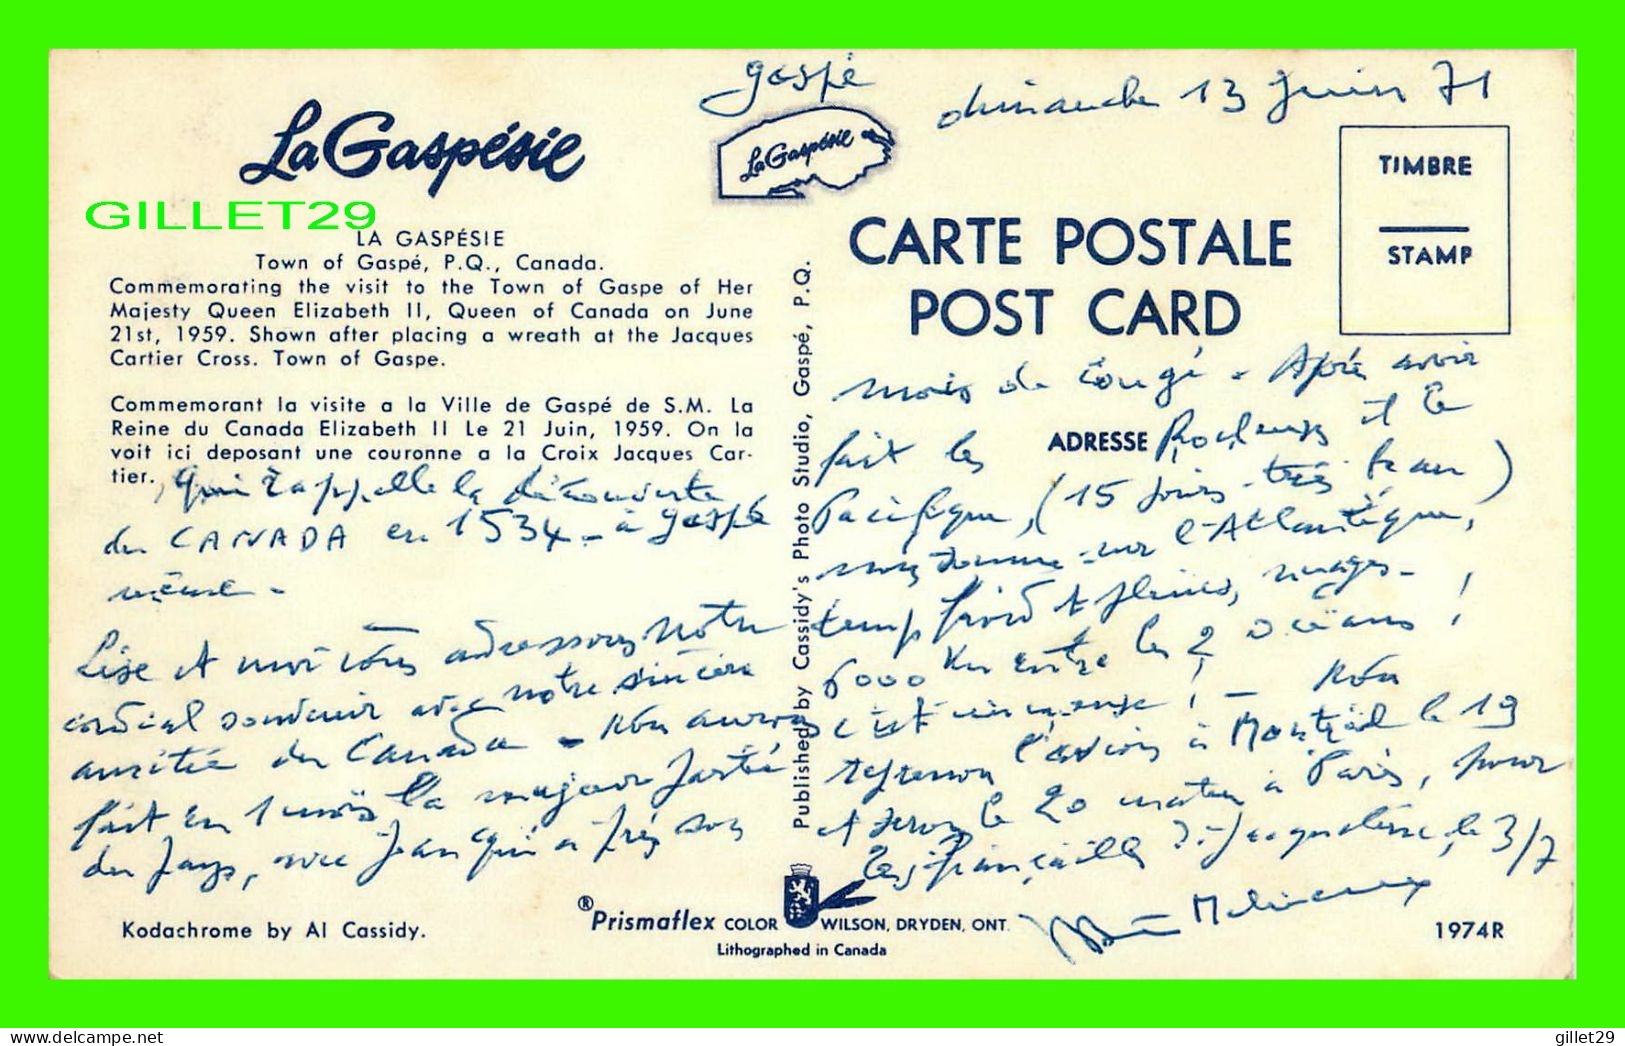 gaspé
dimanche 13 Juin 71
La Gaspésie
La Gaspésie
TIMBRE
STAMP
GILLET29
LA GASPÉSIE
Town of Gaspé, P.Q., Canada.
Commemorating the visit to the Town of Gaspe of Her
Majesty Queen Elizabeth II, Queen of Canada on June
21st, 1959. Shown after placing a wreath at the Jacques
Cartier Cross. Town of Gaspe.
Commemorant la visite a la Ville de Gaspé de S.M. La
Reine du Canada Elizabeth II Le 21 Juin, 1959. On la
voit ici deposant une couronne a la Croix Jacques Car-
tier., qui rappelle la découverte
du CANADA en 1534 - à gaspé
même -
Lise et moi vous adressons notre
cordial souvenir avec notre sincère
amitié du Canada - Nous aurons
fait en 1 mois la majeure partie
du pays, avec Jean qui a pris son
Published by Cassidy's Photo Studio, Gaspé, P.Q.
CARTE POSTALE
POST CARD
mois de congé - Après avoir
fait les ADRESSE Rocheuses et le
Pacifique, (15 jours très beau)
nous sommes sur l'Atlantique,
temps froid et pluies, nuages -
6000 Km entre les 2 océans !
c'est immense ! - Nous
reprenons l'avion à Montréal le 19
et serons le 20 matin à Paris, pour
les fiançailles de Jacqueline, le 3/7
Kodachrome by Al Cassidy.
®Prismaflex COLOR WILSON, DRYDEN, ONT.
Lithographed in Canada
1974R
gillet29